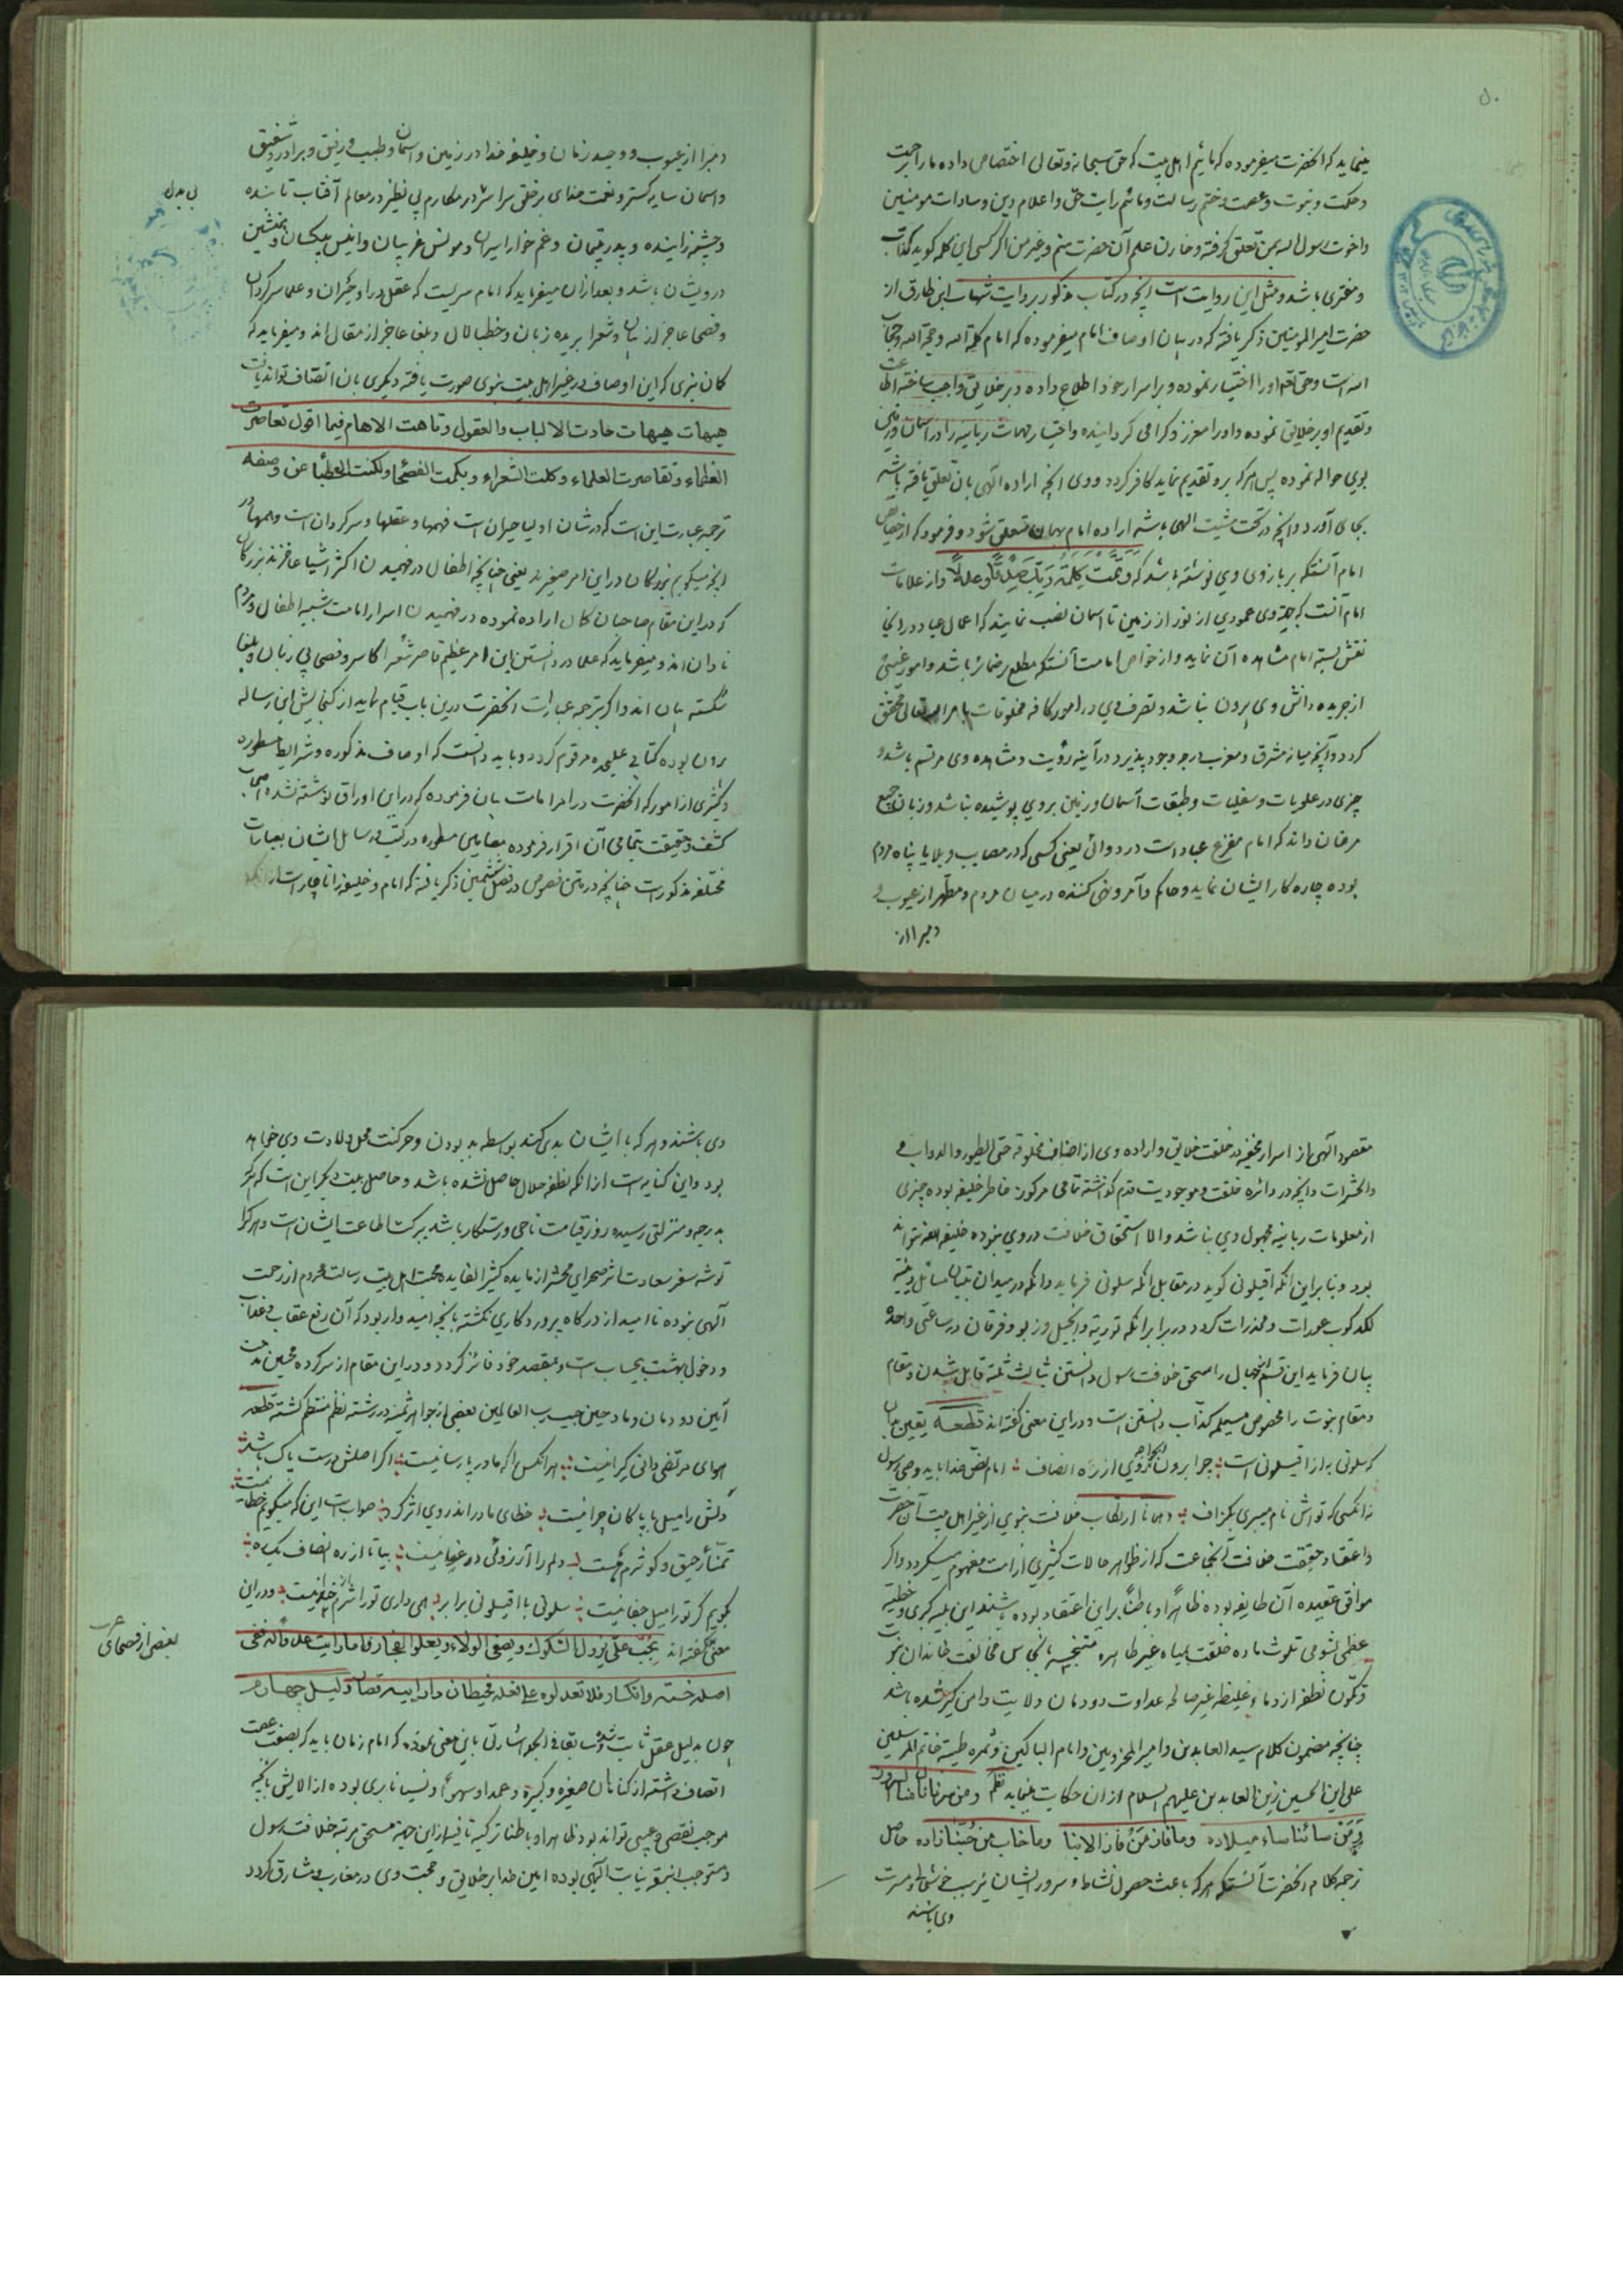 مینماید که آنحضرت میفرموده که مائیم اهل بیت که حق سبحانه وتعالی اختصاص داده ما را برحمت
و حکمت و نبوت و عصمت و ختم رسالت و مائیم رایت حق و اعلام دین و سادات مومنین
واخوت رسول الله بمن تعلق گرفته و خازن علم آن حضرت منم و غیر من اگر کسی این کلمه گوید کذاب
و مفتری باشد و مثل این روایت است آنچه در کتاب مذکور بروایت شهاب ابن طارق از
حضرت امیر المومنین ذکر یافته که در بیان اوصاف امام میفرموده که امام کلمة الله و حجة الله و حجاب
الله است و حق تعم او را اختیار نموده و بر اسرار خود اطلاع داده و بر خلایق واجب ساخته اطاعت
و تقدیم او بر خلایق نموده و او را معزز و گرامی گردانیده و اختیار مهمات ربانیه را در آسمان و زمین
بوی حواله نموده پس هر که برو تقدیم نماید کافر گردد و وی آنچه اراده الهی بآن تعلق یافته باشد
بجای آورد و آنچه در تحت مشیت الهی باشد اراده امام بهمان متعلق شود و فرمود که از خصایص
امام آنستکه بر بازوی وی نوشته باشد که وَتَمَّتْ کَلِمَةُ رَبِّکَ صِدْقًا وَعَدْلًا و از علامات
امام آنست که جهة وی عمودی از نور از زمین تا آسمان نصب نمایند که اعمال عباد در انجا
نقش بسته امام مشاهده آن نماید و از خواص امامت آنستکه مطلع بر ضمائر باشد و امور غیبی
از جریده دانش وی بیرون نباشد و تصرف وی در امور کافه مخلوقات بامر الله تعالی محقق
گردد و آنچه میانه مشرق و مغرب درجه وجود پذیرد در آینه رؤیت و مشاهده وی مرتسم باشد و
چیزی در علویات و سفلیات و طبقات آسمان و زمین بر وی پوشیده نباشد و زبان جمیع
مرغان داند که امام مفزع عباد است در دواهی یعنی کسی که در مصایب و بلایا پناه مردم
بوده چاره کار ایشان نماید و حاکم و آمر و نهی کننده در میان مردم و مطهر از عیوب و
و مبرا از
و مبرا از عیوب و وحید زمان و خلیفه خدا در زمین و آسمان و طبیب و رفیق و برادر شفیق
و آسمان سایه گستر و نعمت خدای بر خلق سراسر در مکارم بی نظیر در معالم آفتاب تابنده
بی بدل
و چشمه زاینده و پدر یتیمان و غم خوار اسیران و مونس غریبان و انیس بیکسان و همنشین
درویشان باشد و بعد ازان میفرماید که امام سریست که عقل در او حیران و علما سرگردان
و فصحا عاجز از بیان و شعرا بریده زبان و خطبا لال و بلغا عاجز از مقال اند و میفرماید که
گمان نبری که این اوصاف در غیر اهل بیت نبوی صورت یافته دیگری بآن اتصاف تواند یافت
هیهات هیهات حادت الالباب والعقول وتاهت الافهام فیما اقول تصاغرت
العظماء وتقاصرت العلماء وکلت الشعراء وبکمت الفصحاء ولکنت الخطباء عن وصفه
ترجمه عبارت این است که در شان اولیا حیران است فهمها و عقلها و سرگردان است وهمها در
انچه میگویم بزرگان در این امر صغیرند یعنی چنانچه اطفال در فهمیدن اکثر اشیا عاجزند بزرگان
که در این مقام صاحبان کمال اراده نموده در فهمیدن اسرار امامت شبیه اطفال و مردم
نادان اند و میفرماید که علما در دانستن این امر عظیم قاصر شعرا کاسر و فصحا بی زبان و بلغا
شکسته بیان اند و اگر ترجمه عبارات آنحضرت درین باب قیام نماید از گنجایش این رساله
برون بوده کتابی علیحده مرقوم گردد و باید دانست که اوصاف مذکوره و شرایط مسطوره
و کثیری از امور که آنحضرت در امر امامت بیان فرموده که در این اوراق نوشته نشده اصحاب
کشف و حقیقت بتمامی آن اقرار فرموده مضامین مسطوره در کتب و رسایل ایشان بعبارات
مختلفه مذکور است چنانچه در متن فصوص در فصل ششمین ذکر یافته که امام و خلیفه را ناچار است
مقصود الهی از اسرار مخفیه در خلقت خلایق و اراده وی از اصناف مخلوقه حتی الطیور والدواب و
والحشرات و انچه در دائره خلقت و موجودیت قدم گذاشته تمامی مرکوز خاطر خلیفه بوده چیزی
از معلومات ربانیه مجهول وی نباشد والا استحقاق خلافت در وی نبوده خلیفه الله نتواند
بود و بنا براین آنکه اقیلونی گوید در مقابل آنکه سلونی فرماید و آنکه در میدان مسائل دینیه
لگدکوب عورات و مخدرات گردد در برابر آنکه توریة و انجیل و زبور و فرقان در ساعتی واحده
بیان فرماید این قسم جهال را مستحق خلافت رسول دانستن بثالث ثلثه قایل شدن و مقام
و مقام نبوت را مخصوص مسیلمه کذاب دانستن است و در این معنی گفته اند قطعه یقین بدان
که سلونی به از اقیلونی است چرا برون روی از ره انصاف امام نص خدا باید و وصی رسول
نه آنکسی که تواش نام میبری بگزاف و همانا ارتکاب خلافت نبوی از غیر اهل بیت آن حضرت
و اعتقاد حقیقت خلافت آنجماعت که از ظواهر حالات کثیری از امت مفهوم میگردد و اگر
موافق عقیده آن طایفه بوده ظاهراً و باطناً براین اعتقاد بوده باشند این بلیه کبری و خطیئه
عظمی بشومی تلوث ماده خلقت بمیاه غیر طاهره متنجسه بانجاس مخالفت خاندان نبوت
و تکون نطفه از دماء غلیظه غیر صالحه عداوت دودمان ولایت دامن گیر شده باشد
چنانچه مضمون کلام سید العابدین و امیر المحزونین و امام الباکین و ثمره طیبه خاتم المرسلین
علی ابن الحسین زین العابدین علیهم السلام ازان حکایت مینماید نظم ومن سرنا نال منا السرور
وَمَن سائنا ساء میلاده وما فاز من فاز الا بنا وما خاب من حبنا زاده حاصل
ترجمه کلام آنحضرت آنستکه هر که باعث حصول نشاط و سرور ایشان مترتب خوشحالی و مسرت
وی باشند
وی باشند و هر که با ایشان بدی کند بواسطه بد بودن و حرکت محل ولادت وی خواهد
بود و این کنایه است از آنکه نطفه حلال حاصل نشده باشد و حاصل بیت دیگر این است که هر که
بدرجه و منزلتی رسیده روز قیامت ناجی و رستگار باشد ببرکت اطاعت ایشان است و هر کرا
توشه سفر سعادت اثر صحرای محشر از مایده کثیر الفایده محبت اهل بیت رسالت محروم از رحمت
الهی نبوده نا امید از درگاه پروردگاری نگشته بآنچه امیدوار بود که آن رفع عقاب و عذاب
و دخول بهشت بیحساب است و بمقصد خود فائز گردد و در این مقام از سرکرده محبین مذهب
آئین دودمان و مادحین حبیب رب العالمین بعضی از جواهر ثمینه در رشته نظم منتظم گشته قطعه
هوای مرتضی دانی کرا نیست هر آنکس را که مادر پارسا نیست اگر اصلش درست پاک باشد
دلش را میل با پاکان چرا نیست خطای مادر اندر وی اثر کرد صواب است این که میگویم خطا نیست
تمناء رحیق و کوثرم هست دلم را آرزوئی در غنا نیست بیا تا از ره انصاف یک ره
بگویم گر تو را میل جفا نیست سلونی با اقیلونی برابر همی داری تو را شرم از خدا نیست و در این
معنی گفته اند بحب علی یزول الشکوک ویصفو الولاء ویعلو الفخار فاما رایت عدواً له ففی
بعضی از فصحای عرب
اصله خسة وانکسار فلا تعذلوه علی فعله فحیطان دار ابیه قصار دلیل چهارم
چون بدلیل عقل ثابت شد و سابقا فی الجمله اشارتی باین معنی نموده که امام زمان باید که بصفت عصمت
اتصاف داشته از گناهان صغیره و کبیره و عمدا و سهوا و نسیانا بری بوده از الایش بآنچه
موجب نقصی و عیبی تواند بود ظاهرا و باطنا تزکیه یافته از این جهة مستحق مرتبه خلافت رسول
و مستوجب مرتبه نیابت الهی بوده امین خدا بر خلایق و حجت وی در مغارب و مشارق گردد